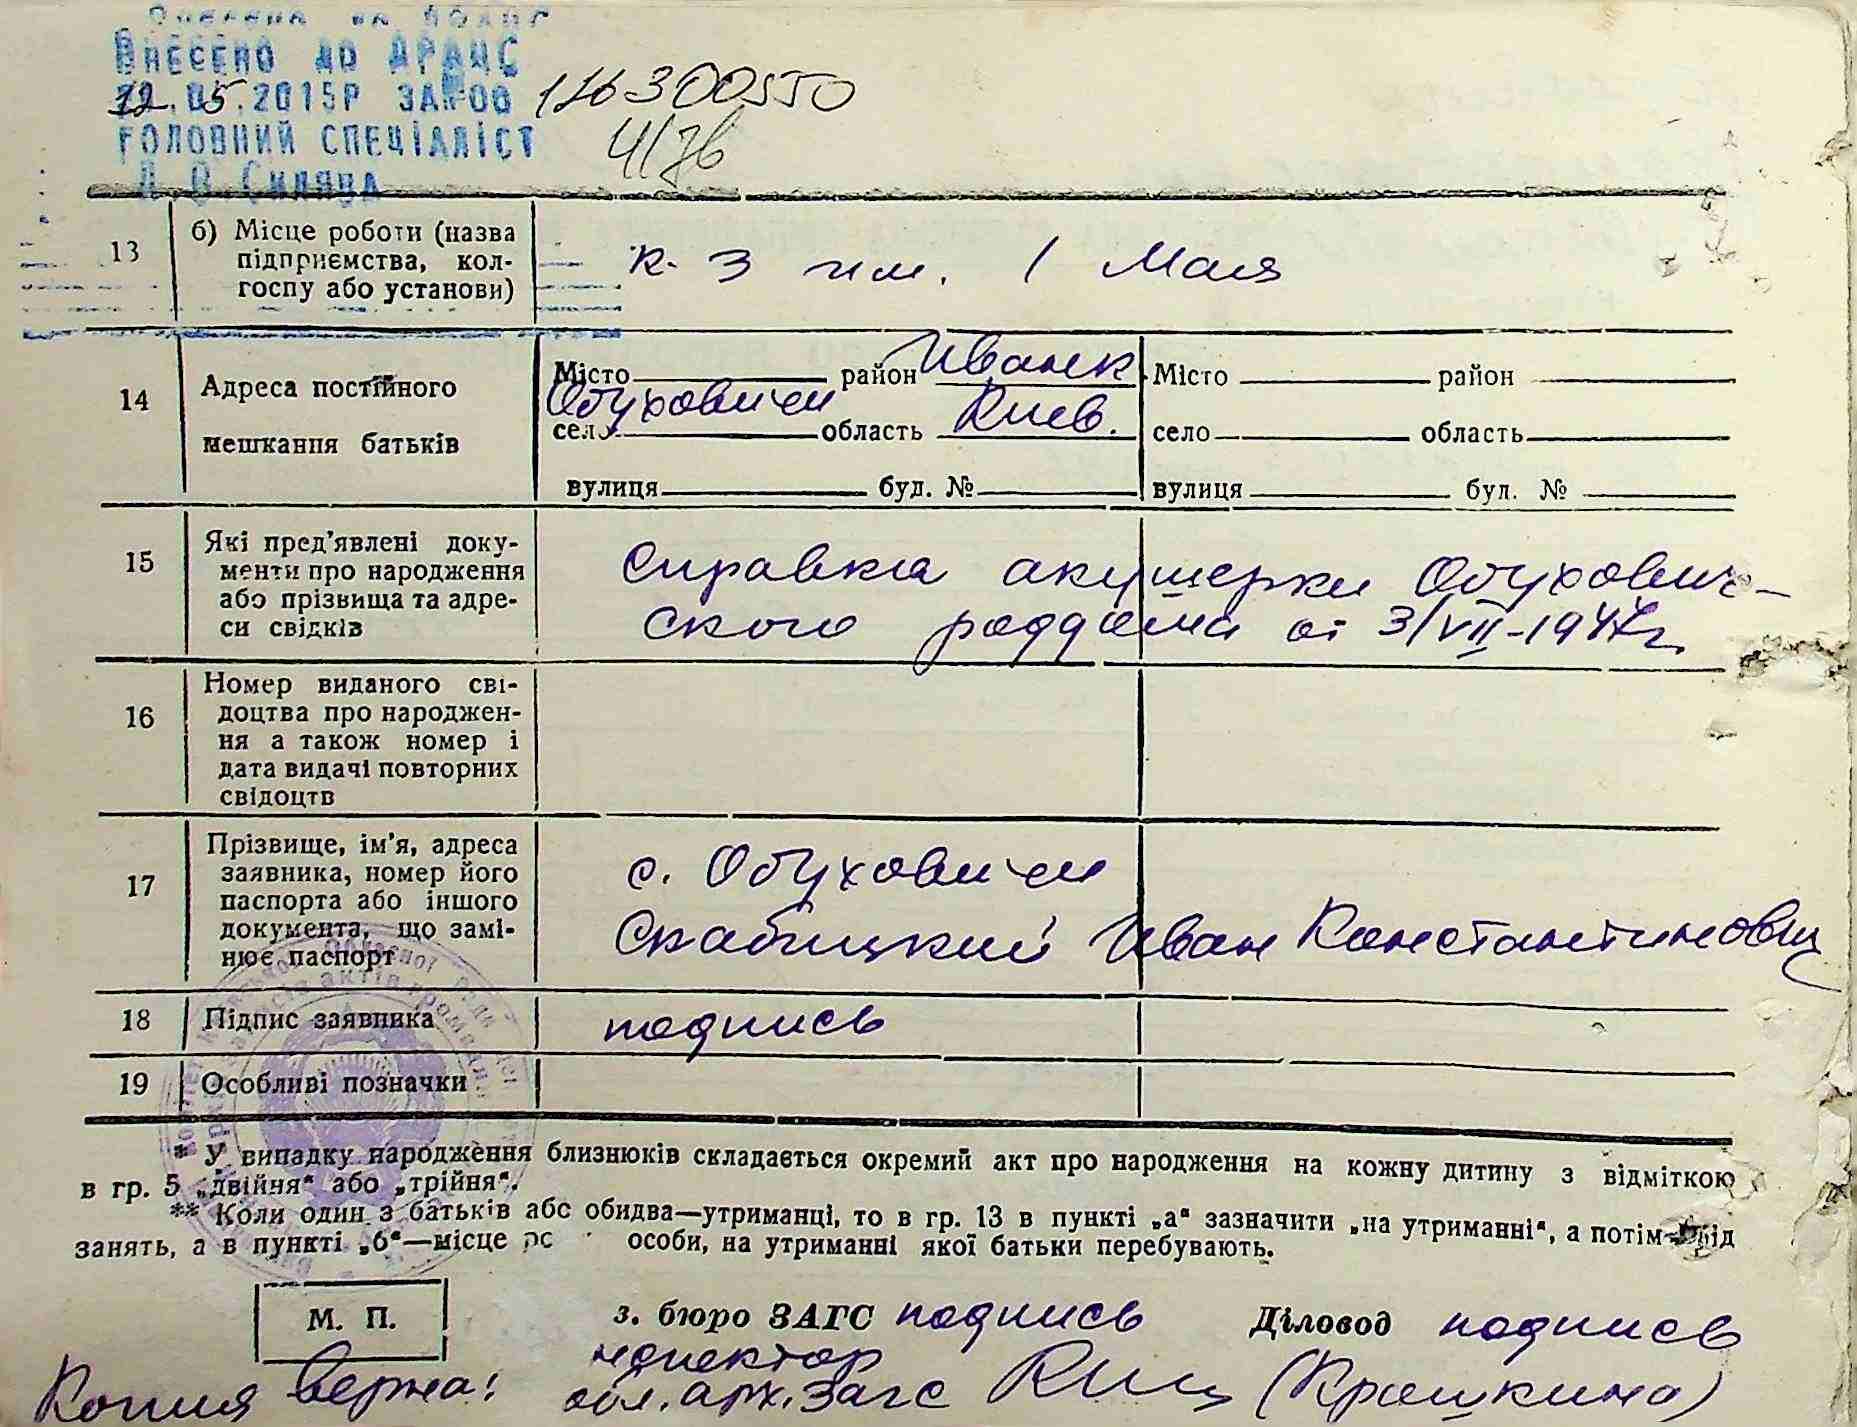 Внесено до ДРАЦС
22.05.2015р за №00 126300550
4176
Головний спеціаліст
13 б) Місце роботи (назва підприємства, кол-
госпу або установи)
к-з им. 1 Мая
14 Адреса постійного
мешкання батьків
Місто район Иванк Місто район
село Обуховичи область Киев. село область
вулиця буд. № вулиця буд. №
15 Які пред'явлені доку-
менти про народження
або прізвища та адре-
си свідків
Справка акушерки Обухович-
ского роддома от 3/VII-1947г.
16 Номер виданого сві-
доцтва про народжен-
ня а також номер і
дата видачі повторних
свідоцтв
17 Прізвище, ім'я, адреса
заявника, номер його
паспорта або іншого
документа, що замі-
нює паспорт
с. Обуховичи
Скабицкий Иван Константинович
18 Підпис заявника подпись
19 Особливі позначки
* У випадку народження близнюків складається окремий акт про народження на кожну дитину з відміткою
в гр. 5 „двійня" або „трійня".
** Коли один з батьків або обидва—утриманці, то в гр. 13 в пункті „а" зазначити „на утриманні", а потім рід
занять, а в пункті „б"—місце особи, на утриманні якої батьки перебувають.
М. П. з. бюро ЗАГС подпись Діловод подпись
Копия верна: обл. арх. Загс (Крашкина)